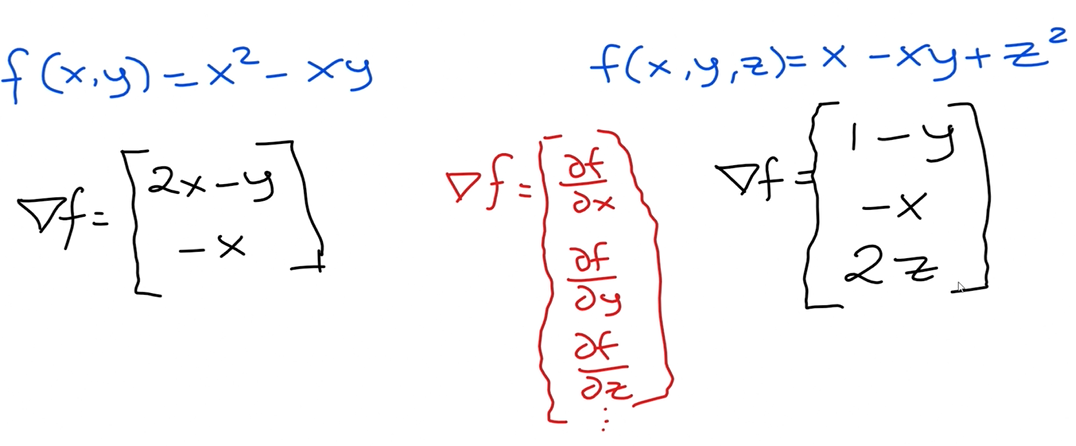 f(x,y) = x² - xy
∇f = [2x - y
-x]
∇f = [∂f/∂x
∂f/∂y
∂f/∂z
⋮]
f(x,y,z) = x - xy + z²
∇f = [1 - y
-x
2z]